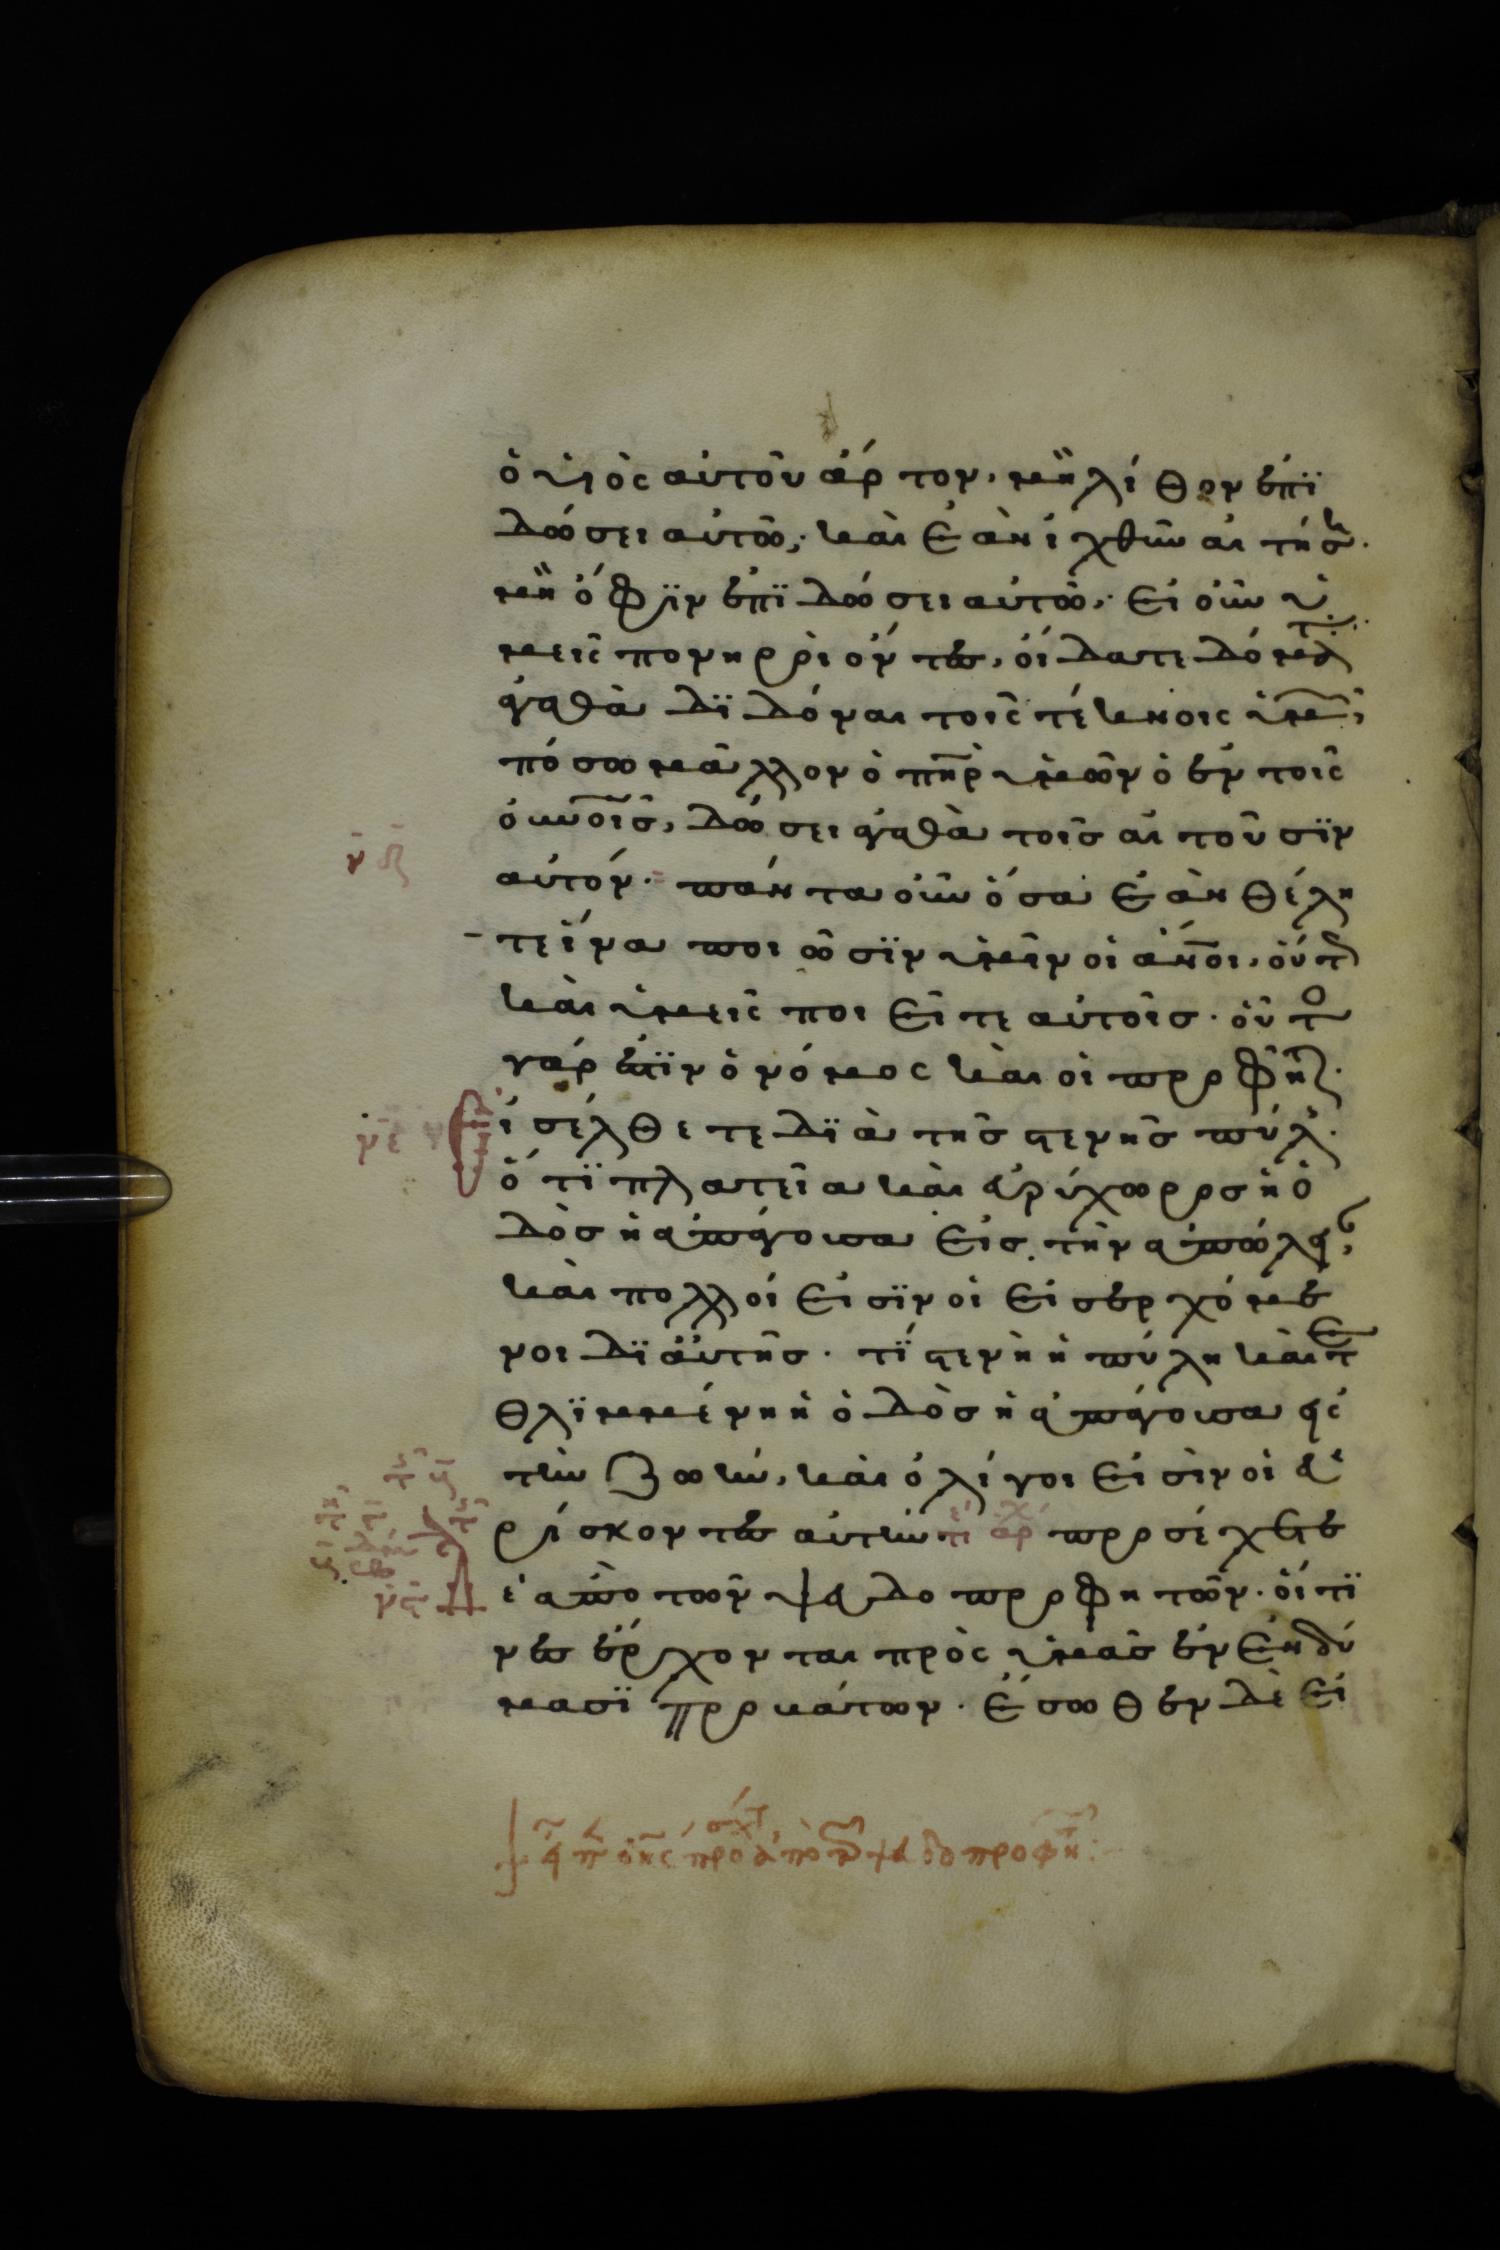 ὁ υἱὸς αὐτοῦ ἄρτον, μὴ λίθον ἐπϊ
δώσει αὐτῶ; καὶ ἐὰν ἰχθῦν αἰτήσῃ.
μὴ ὄφϊν ἐπϊδώσει αὐτῶ; εἰ οὖν ὑ
μεῖς πονηροὶ ὄντες, οἴδατε δόματα
ἀγαθὰ δϊδόναι τοῖς τέκνοις ὑμῶν,
πόσω μᾶλλον ὁ πη̅ρ ὑμῶν ὁ ἐν τοῖς
οὐνοῖς, δώσει ἀγαθὰ τοῖς αἰτοῦσϊν
αὐτόν. πάντα οὖν ὅσα ἐὰν θέλη
τε ἵνα ποιῶσϊν ὑμῖν οἱ ἄν̅οι, οὕτως
καὶ ὑμεῖς ποιεῖτε αὐτοῖς. οὗτο
γάρ ἐστϊν ὁ νόμος καὶ οἱ προφῆται.
νε Εἰσέλθετε δϊὰ τῆς στενῆς πύλης.
ὅτϊ πλατεῖα καὶ εὐρύχωρος ἡ ὁ
δὸς ἡ ἀπάγουσα εἰς τὴν ἀπώλειαν,
καὶ πολλοί εἰσϊν οἱ εἰσερχόμε
νοι δϊ αὐτῆς. τϊ στενὴ ἡ πύλη καὶ τε
θλϊμμένη ἡ ὁδὸς ἡ ἀπάγουσα εἰς
τὴν ζωὴν, καὶ ὀλίγοι εἰσὶν οἱ εὑ
ρίσκοντες αὐτήν προσέχετε
ἀπὸ τῶν ψευδοπροφητῶν. οἵτϊ
νες ἔρχονται πρὸς ὑμᾶς ἐν ἐνδύ
μασϊ προβάτων. ἔσωθεν δέ εἰ